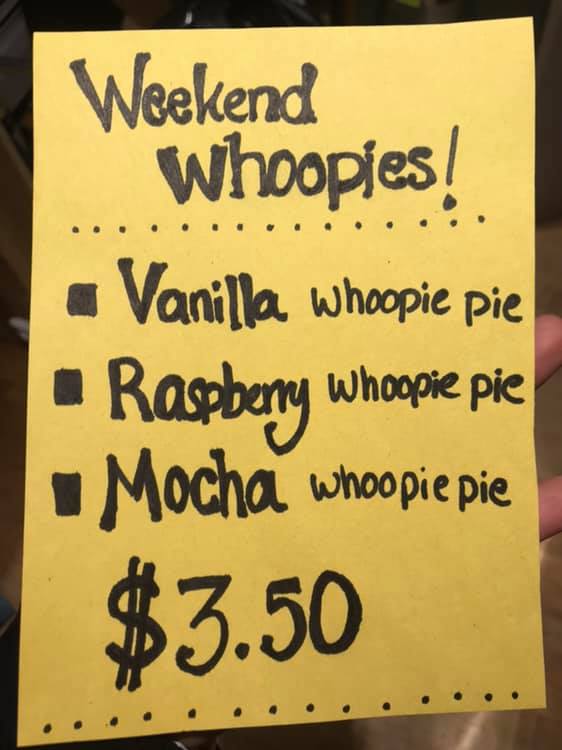 Weekend
Whoopies!
Vanilla whoopie pie
Raspberry whoopie pie
Mocha whoopie pie
$3.50